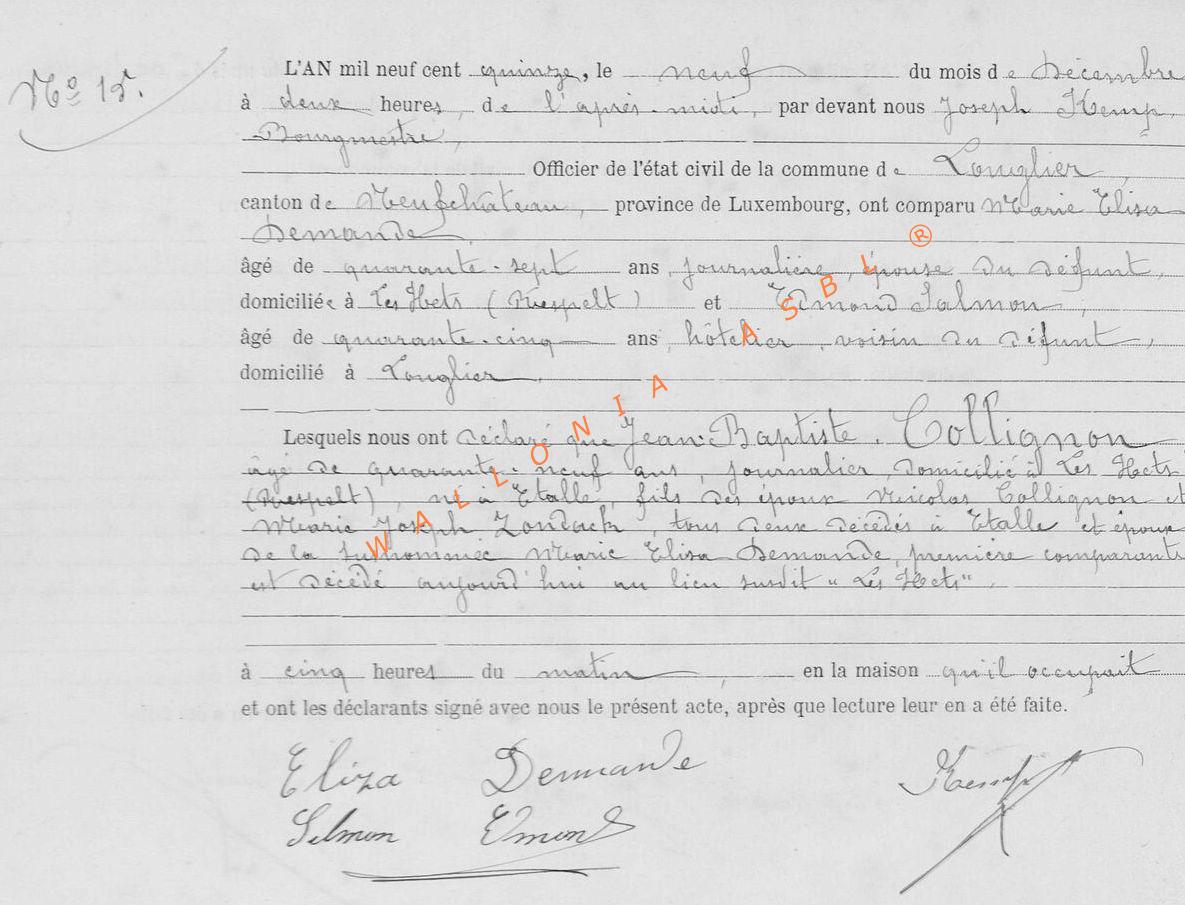 N° 15.
L'AN mil neuf cent quinze, le neuf du mois de Décembre
à deux heures, de l'après-midi, par devant nous Joseph Kemp,
Bourgmestre,
Officier de l'état civil de la commune de Longlier,
canton de Neufchâteau, province de Luxembourg, ont comparu Marie Elisa
Demande,
âgé de quarante-sept ans, journalière, épouse du défunt,
domiciliée à Les Hets (Respelt) et Edmond Salmon,
âgé de quarante-cinq ans, hôtelier, voisin du défunt,
domicilié à Longlier.
Lesquels nous ont déclaré que Jean-Baptiste Collignon
âgé de quarante-neuf ans, journalier, domicilié à Les Hets
(Respelt), né à Etalle, fils des époux Nicolas Collignon et
Marie Joseph Zondack, tous deux décédés à Etalle et époux
de la susnommée Marie Elisa Demande, première comparante
est décédé aujourd'hui au lieu susdit "Les Hets".
à cinq heures du matin, en la maison qu'il occupait
et ont les déclarants signé avec nous le présent acte, après que lecture leur en a été faite.
Eliza Demande Kemp
Salmon Edmond
WALLONIA ASBL ®